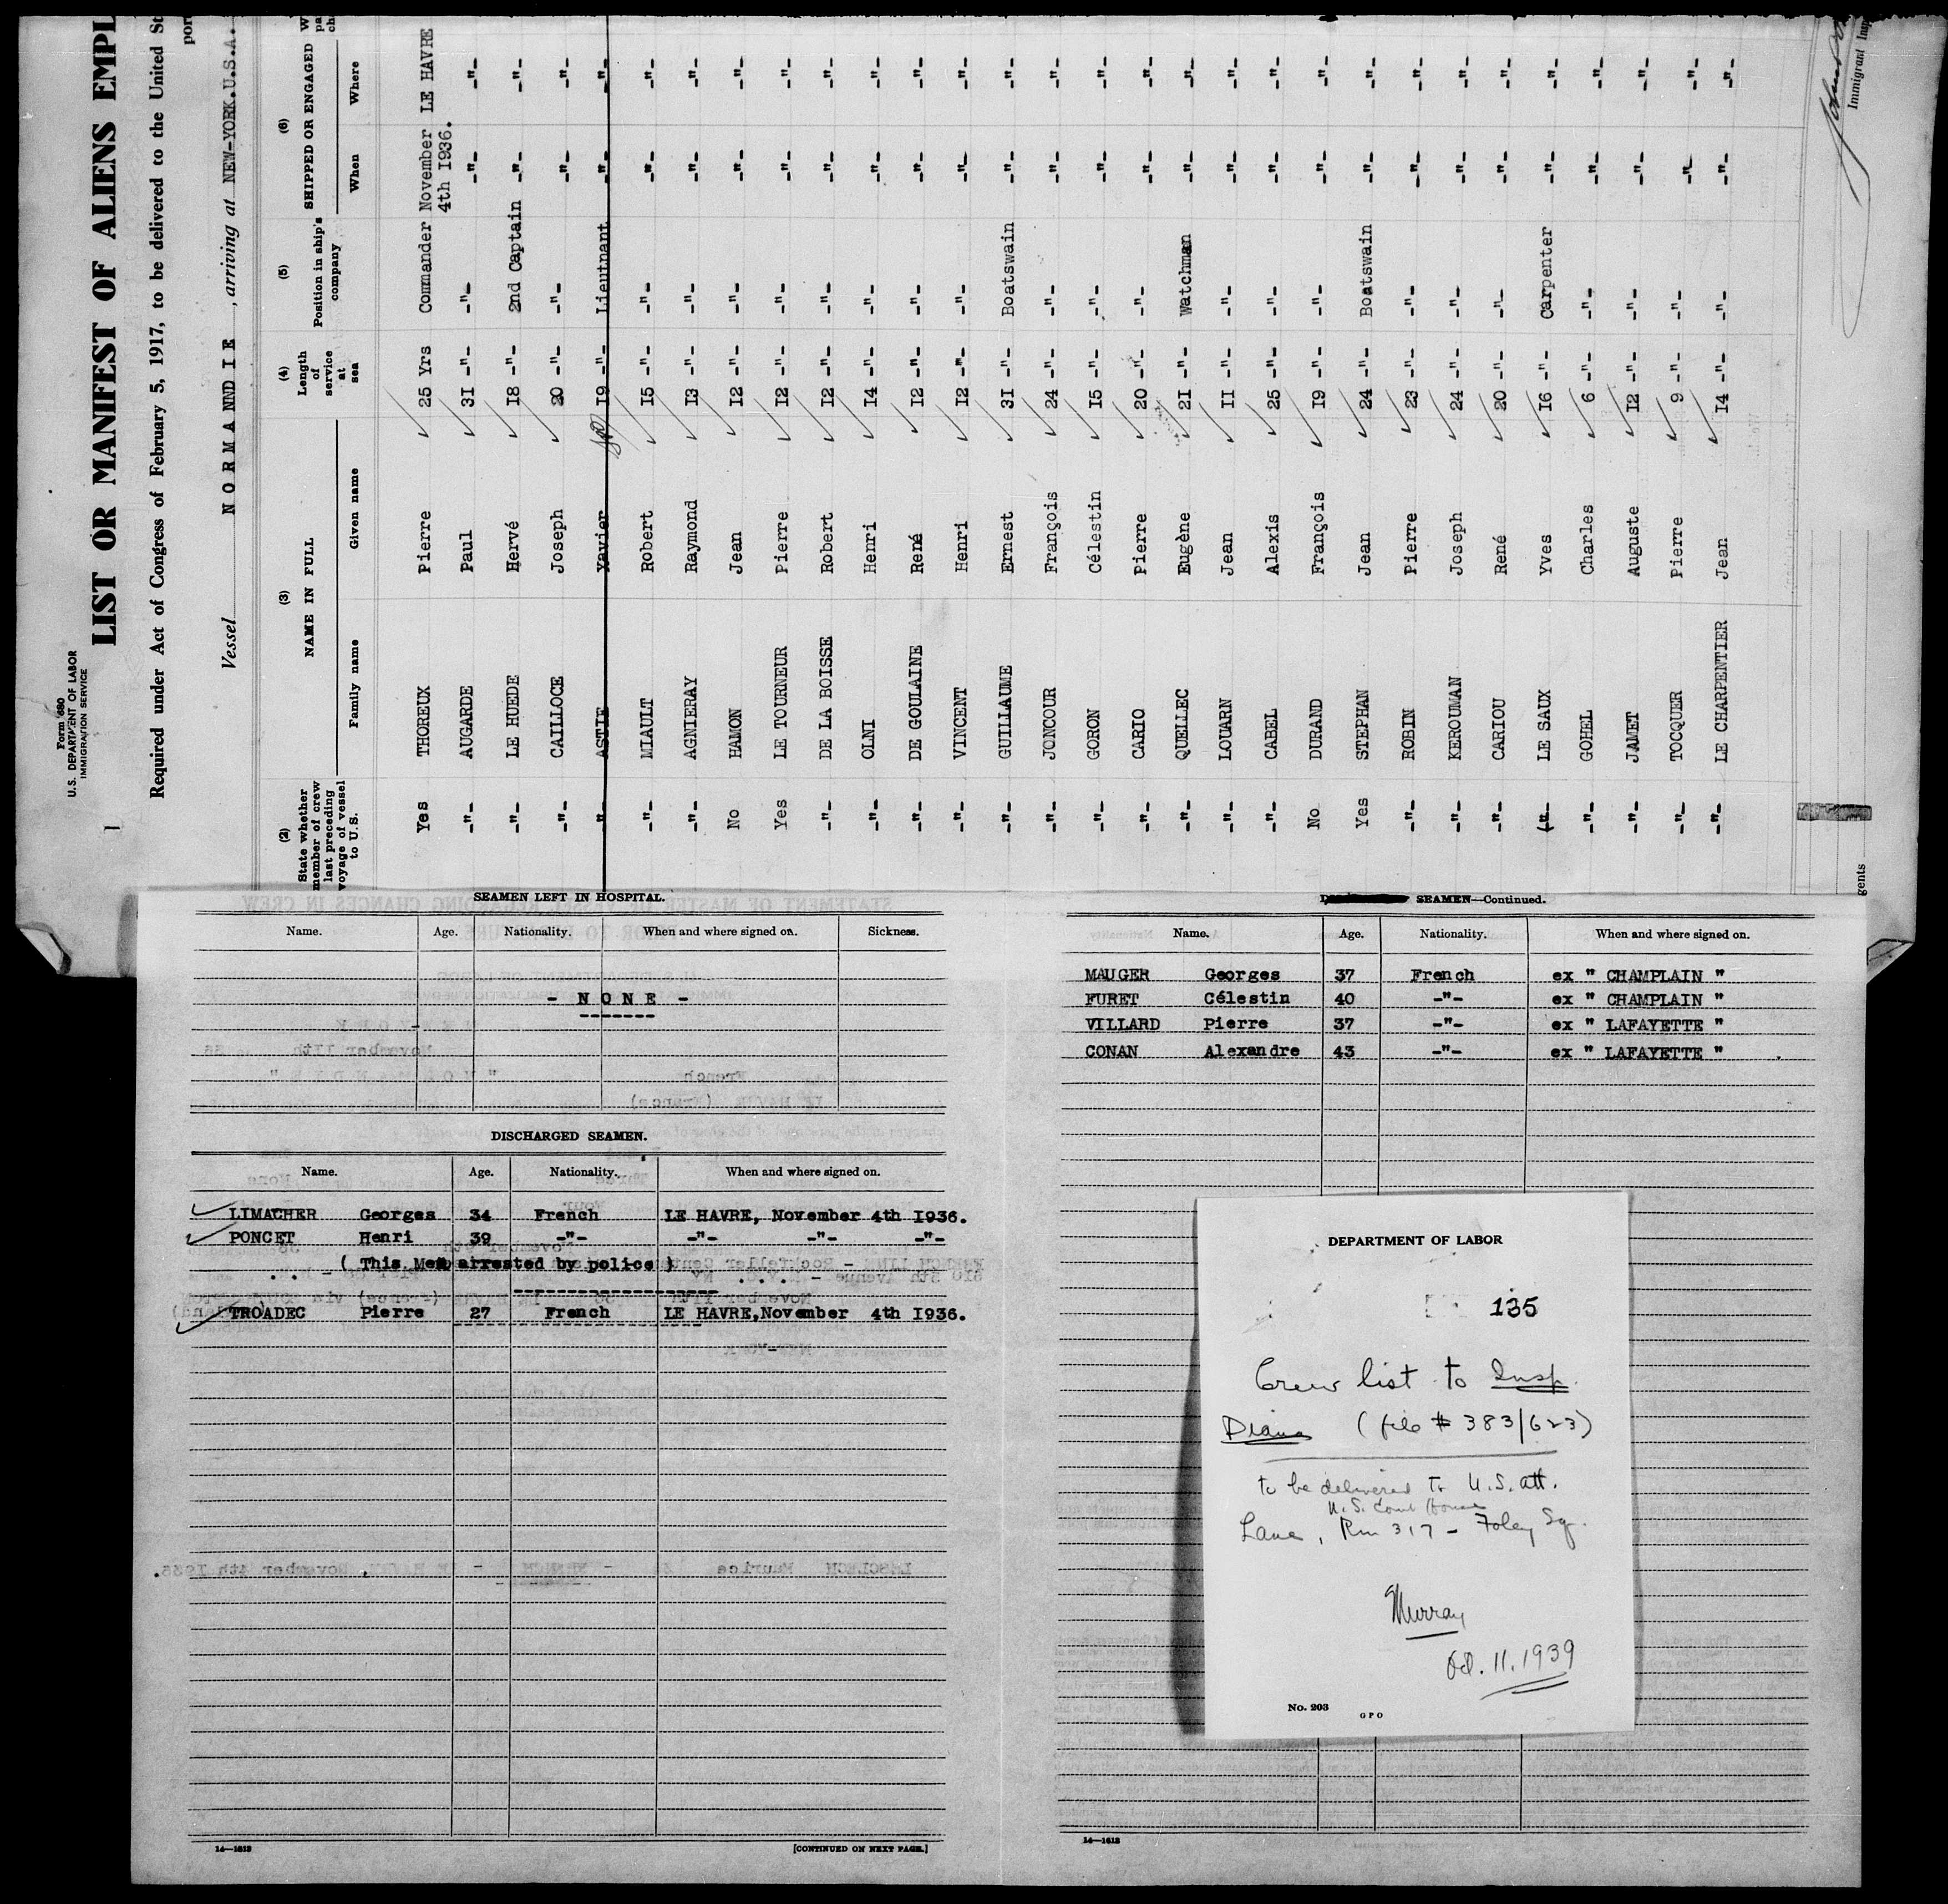 Form 680
U.S. DEPARTMENT OF LABOR
IMMIGRATION SERVICE
LIST OR MANIFEST OF ALIENS EMPL
Required under Act of Congress of February 5, 1917, to be delivered to the United St
por
Vessel NORMANDIE , arriving at NEW-YORK.U.S.A.
(2) (3) (4) (5) (6)
State whether member of crew last preceding voyage of vessel to U.S. NAME IN FULL Length of service at sea Position in ship's company SHIPPED OR ENGAGED
Family name Given name When Where
Yes THOREUX Pierre 25 Yrs Commander November 4th I936. LE HAVRE
-"- AUGARDE Paul 3I -"- -"- -"- -"-
-"- LE HUEDE Hervé I8 -"- 2nd Captain -"- -"-
-"- CAILLOCE Joseph 20 -"- -"- -"- -"-
-"- ASTIE Xavier I9 -"- Lieutnant -"- -"-
-"- MIAULT Robert I5 -"- -"- -"- -"-
-"- AGNIERAY Raymond I3 -"- -"- -"- -"-
No HAMON Jean I2 -"- -"- -"- -"-
Yes LE TOURNEUR Pierre I2 -"- -"- -"- -"-
-"- DE LA BOISSE Robert I2 -"- -"- -"- -"-
-"- OLNI Henri I4 -"- -"- -"- -"-
-"- DE GOULAINE René I2 -"- -"- -"- -"-
-"- VINCENT Henri I2 -"- -"- -"- -"-
-"- GUILLAUME Ernest 3I -"- Boatswain -"- -"-
-"- JONCOUR François 24 -"- -"- -"- -"-
-"- GORON Célestin I5 -"- -"- -"- -"-
-"- CARIO Pierre 20 -"- -"- -"- -"-
-"- QUELLEC Eugène 2I -"- Watchman -"- -"-
-"- LOUARN Jean II -"- -"- -"- -"-
-"- CABEL Alexis 25 -"- -"- -"- -"-
No DURAND François I9 -"- -"- -"- -"-
Yes STEPHAN Jean 24 -"- Boatswain -"- -"-
-"- ROBIN Pierre 23 -"- -"- -"- -"-
-"- KEROUMAN Joseph 24 -"- -"- -"- -"-
-"- CARIOU René 20 -"- -"- -"- -"-
-"- LE SAUX Yves I6 -"- Carpenter -"- -"-
-"- GOHEL Charles 6 -"- -"- -"- -"-
-"- JAMET Auguste I2 -"- -"- -"- -"-
-"- TOCQUER Pierre 9 -"- -"- -"- -"-
-"- LE CHARPENTIER Jean I4 -"- -"- -"- -"-
gents
Immigrant Insp
SEAMEN LEFT IN HOSPITAL.
Name. Age. Nationality. When and where signed on. Sickness.
- N O N E -
DISCHARGED SEAMEN.
Name. Age. Nationality. When and where signed on.
LIMACHER Georges 34 French LE HAVRE, November 4th I936.
PONCET Henri 39 -"- -"- -"- -"-
( This Men arrested by police )
TROADEC Pierre 27 French LE HAVRE,November 4th I936.
14—1613
[CONTINUED ON NEXT PAGE.]
SEAMEN—Continued.
Name. Age. Nationality. When and where signed on.
MAUGER Georges 37 French ex " CHAMPLAIN "
FURET Célestin 40 -"- ex " CHAMPLAIN "
VILLARD Pierre 37 -"- ex " LAFAYETTE "
CONAN Alexandre 43 -"- ex " LAFAYETTE "
14—1613
DEPARTMENT OF LABOR
135
Crew list to Insp.
Diana (file # 383/623)
to be delivered to U.S. att.
U.S. Court House
Lane, Rm 317 - Foley Sq.
Murray
Oct. 11. 1939
No. 203
GPO